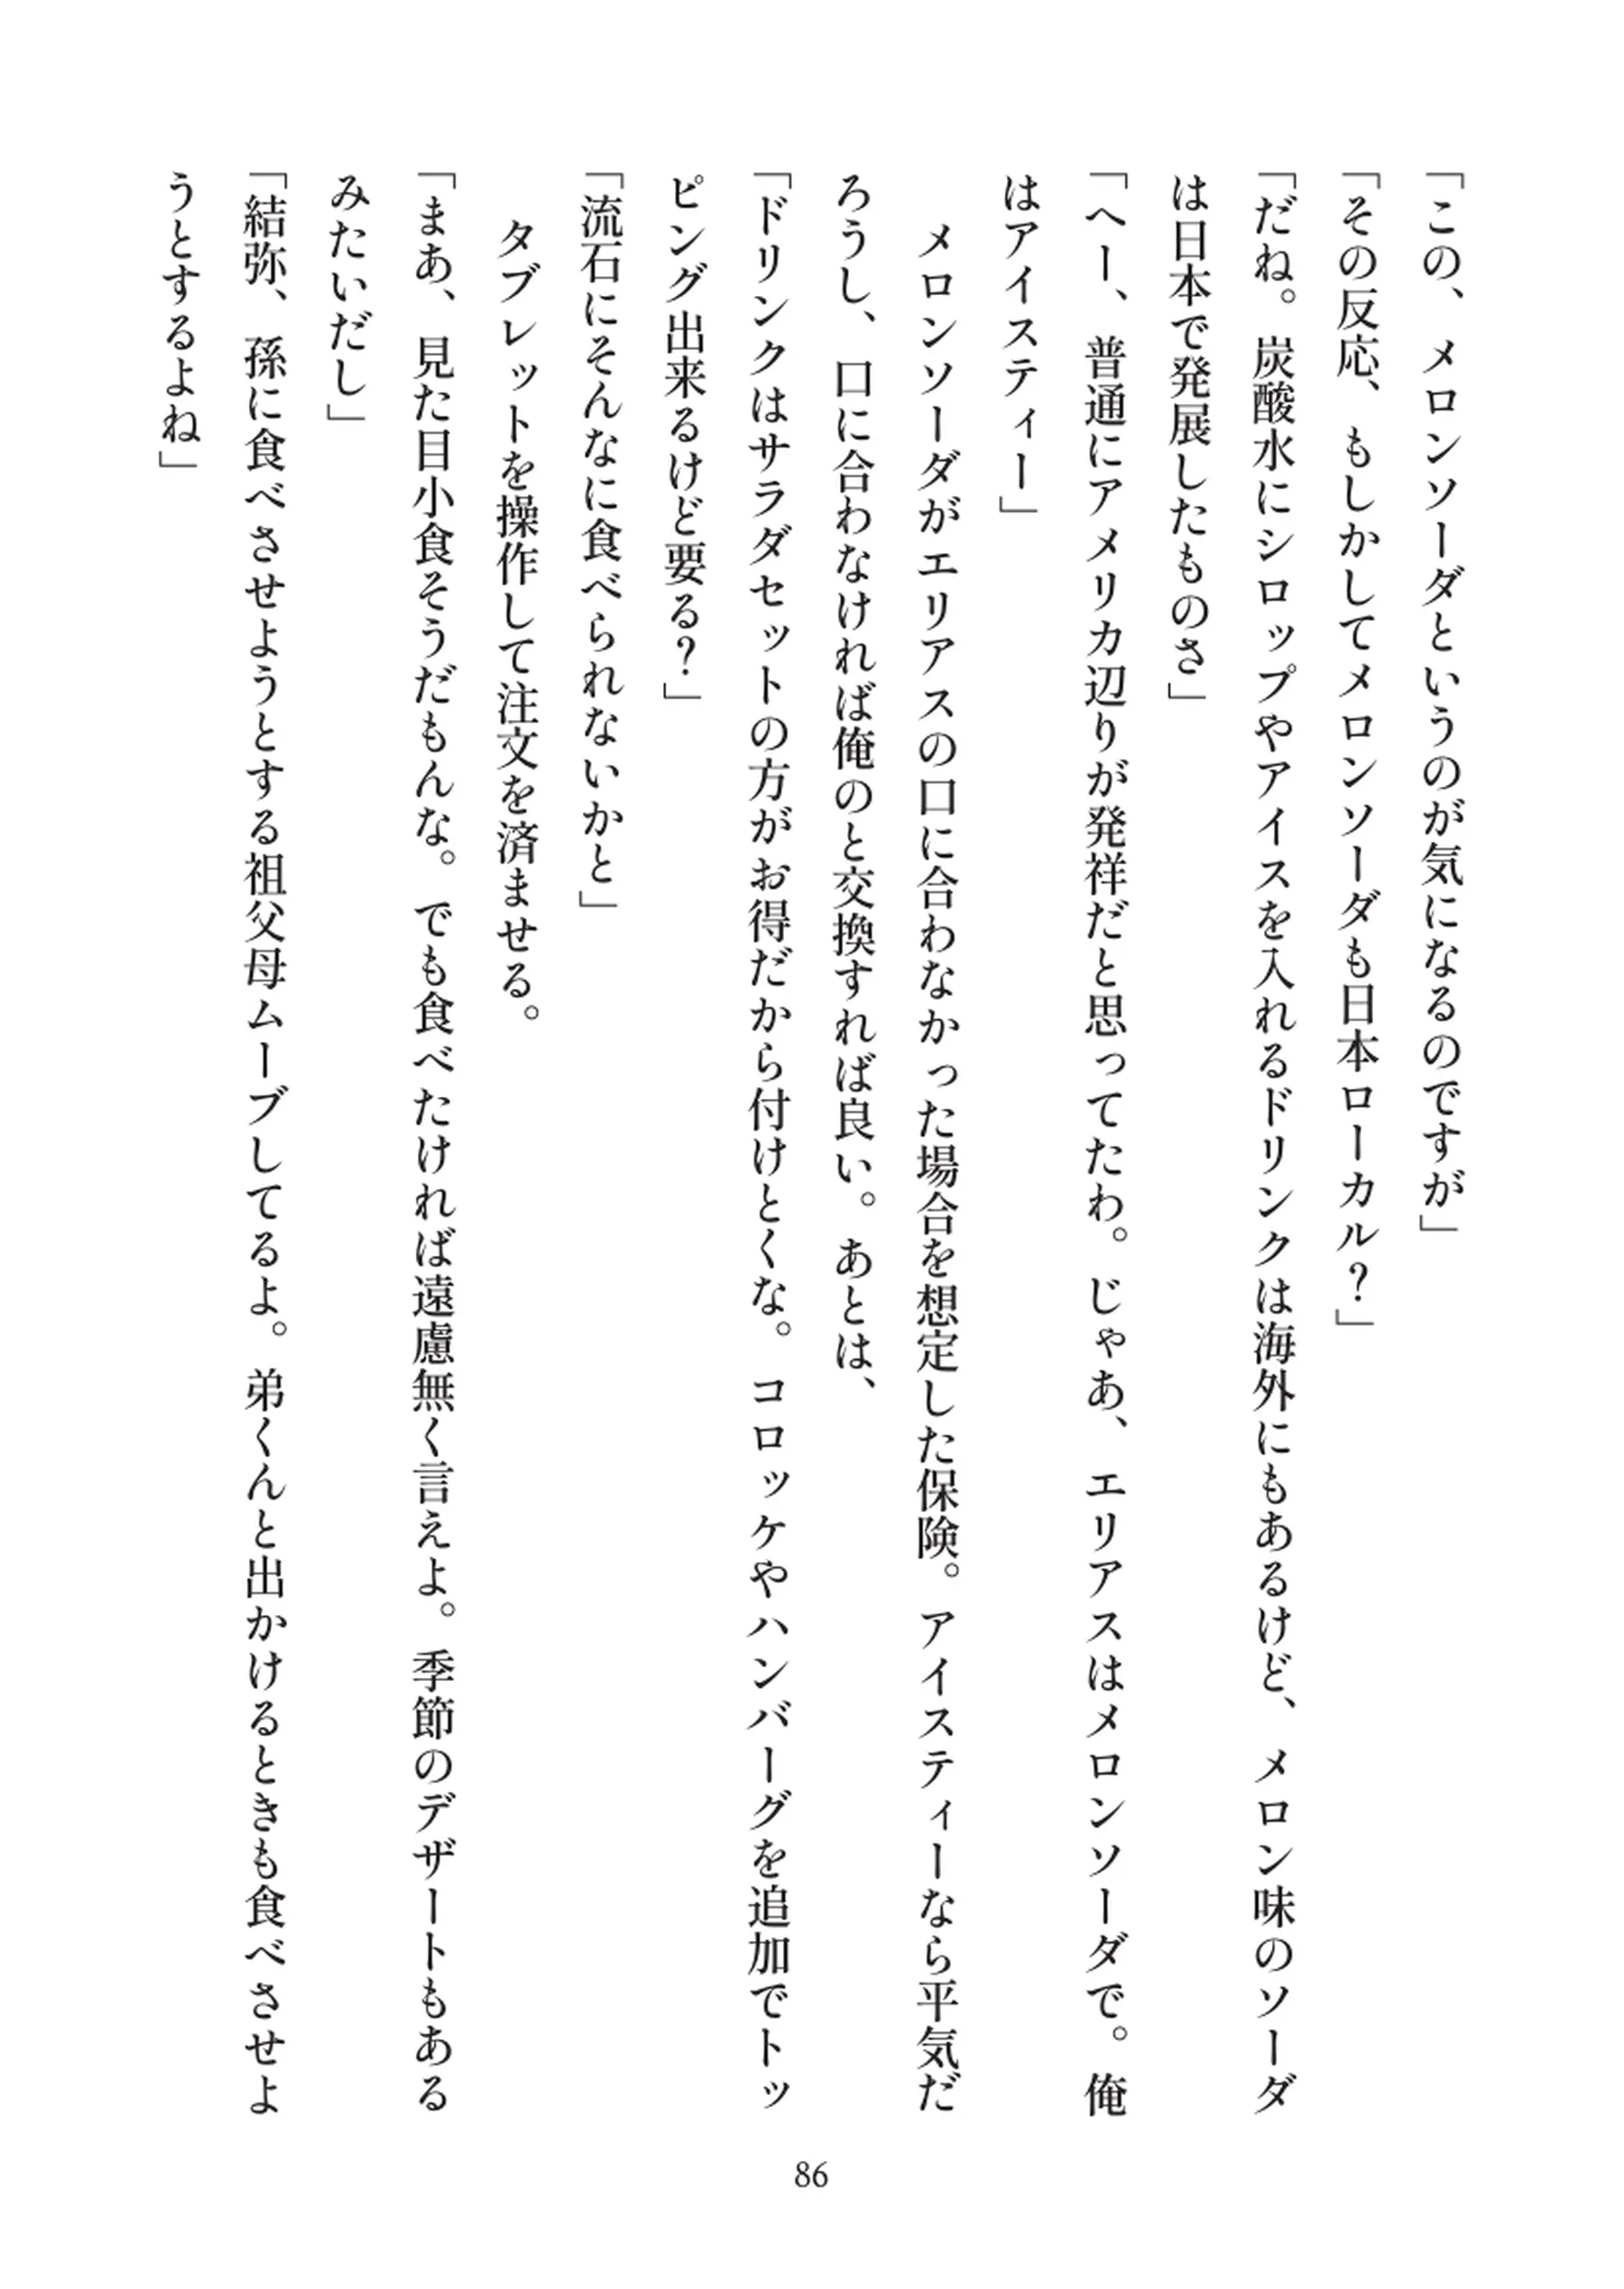 「この、メロンソーダというのが気になるのですが」
「その反応、もしかしてメロンソーダも日本ローカル？」
「だね。炭酸水にシロップやアイスを入れるドリンクは海外にもあるけど、メロン味のソーダ
は日本で発展したものさ」
「へー、普通にアメリカ辺りが発祥だと思ってたわ。じゃあ、エリアスはメロンソーダで。俺
はアイスティー」
　メロンソーダがエリアスの口に合わなかった場合を想定した保険。アイスティーなら平気だ
ろうし、口に合わなければ俺のと交換すれば良い。あとは、
「ドリンクはサラダセットの方がお得だから付けとくな。コロッケやハンバーグを追加でトッ
ピング出来るけど要る？」
「流石にそんなに食べられないかと」
　タブレットを操作して注文を済ませる。
「まあ、見た目小食そうだもんな。でも食べたければ遠慮無く言えよ。季節のデザートもある
みたいだし」
「結弥、孫に食べさせようとする祖父母ムーブしてるよ。弟くんと出かけるときも食べさせよ
うとするよね」
86